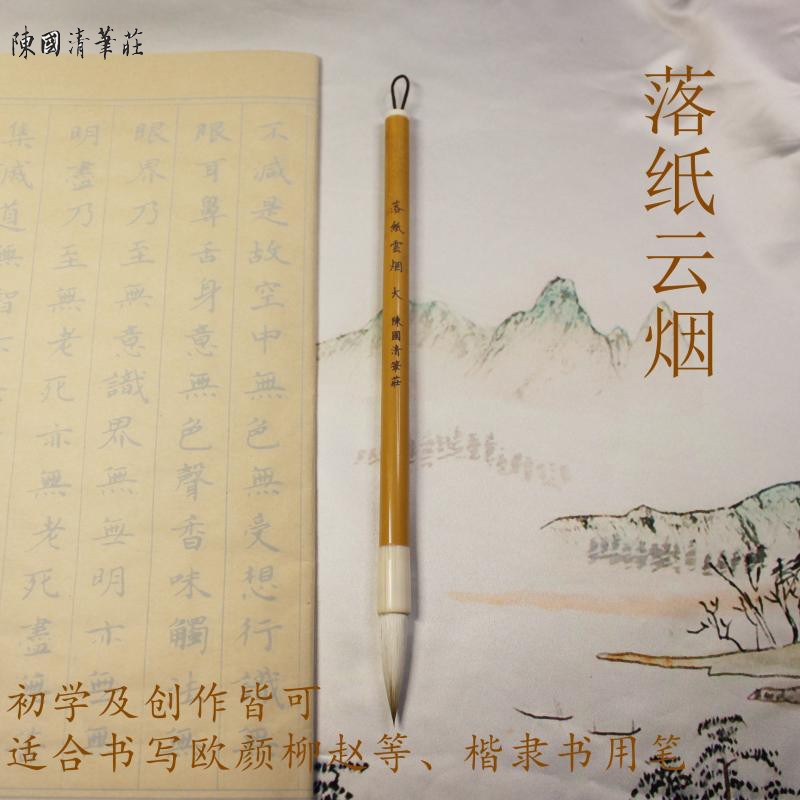 陳國清筆莊
落纸云烟
落紙雲烟 大 陳國清筆莊
不減是故空中無色無受想行識無
眼耳鼻舌身意無色聲香味觸法無
眼界乃至無意識界無無明亦無無
明盡乃至無老死亦無老死盡無
集滅道無智亦
初学及创作皆可
适合书写欧颜柳赵等、楷隶书用笔